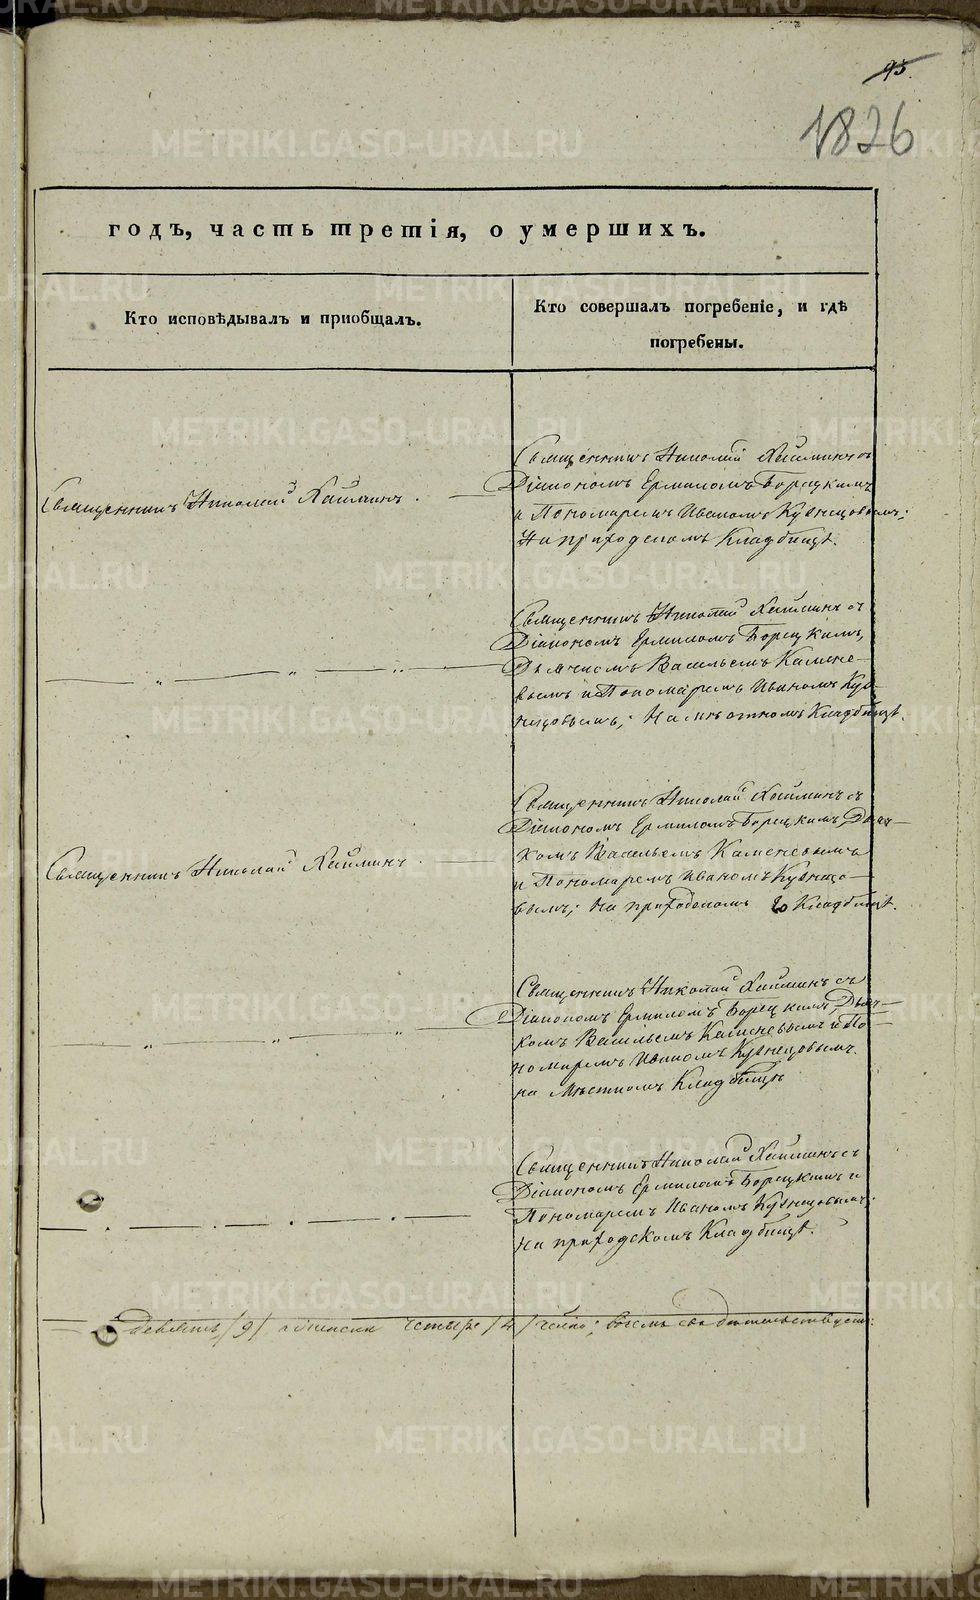 95.
1826
годъ, часть третія, о умершихъ.
Кто исповѣдывалъ и приобщалъ.
Кто совершалъ погребеніе, и гдѣ
погребены.
Священникъ Николай Хаймин съ
Діакономъ Ермиломъ Борецкимъ
и Пономаремъ Иваномъ Кузнецовымъ;
На приходскомъ Кладбищѣ.
Священникъ Николай Хайминъ.
Священникъ Николай Хайминъ съ
Діакономъ Ермиломъ Борецкимъ,
Дьячкомъ Васильемъ Камене-
вымъ и Пономаремъ Иваномъ Куз-
нецовымъ; На мѣстномъ Кладбищѣ.
„ „ „
Священникъ Николай Хайминъ съ
Діакономъ Ермиломъ Борецкимъ, Дьяч-
комъ Васильемъ Каменевымъ
и Пономаремъ Иваномъ Кузнецо-
вымъ; На приходскомъ Кладбищѣ.
Священникъ Николай Хайминъ.
Священникъ Николай Хайминъ съ
Діакономъ Ермиломъ Борецкимъ, Дьяч-
комъ Васильемъ Каменевымъ и По-
номаремъ Иваномъ Кузнецовымъ.
на Мѣстномъ Кладбищѣ
„ „ „
Священникъ Николай Хайминъ съ
Діакономъ Ермиломъ Борецкимъ и
Пономаремъ Иваномъ Кузнецовымъ;
На приходскомъ Кладбищѣ.
девять /9/ а женска четыре /4/ въ семъ свидѣтельствуемъ:
METRIKI.GASO-URAL.RU